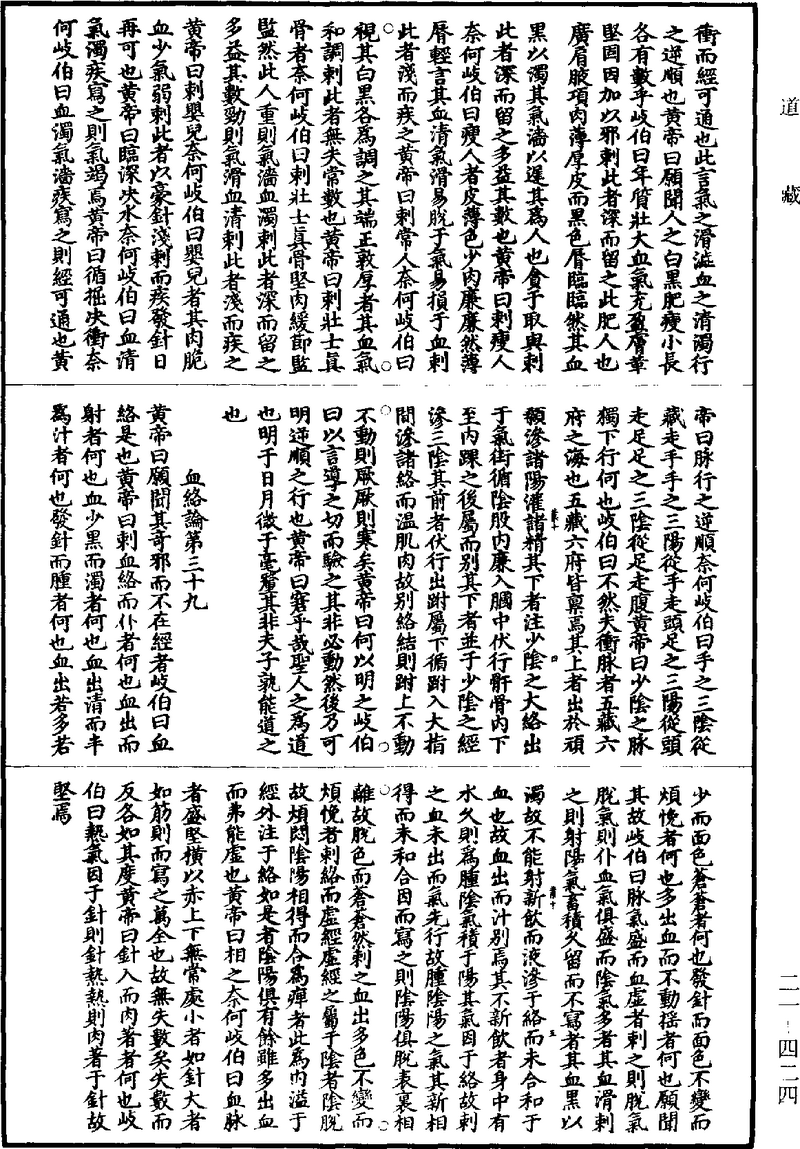 道藏
衝而經可通也此言氣之滑澁血之清濁行
之逆順也黃帝曰願聞人之白黑肥瘦小長
各有數乎岐伯曰年質壯大血氣充盈膚革
堅固因加以邪刺此者深而留之此肥人也
廣肩腋項肉薄厚皮而黑色脣臨臨然其血
黑以濁其氣濇以遲其為人也貪于取與刺
此者深而留之多益其數也黃帝曰刺瘦人
奈何岐伯曰瘦人者皮薄色少肉廉廉然薄
脣輕言其血清氣滑易脫于氣易損于血刺
此者淺而疾之黃帝曰刺常人奈何岐伯曰
視其白黑各為調之其端正敦厚者其血氣
和調刺此者無失常數也黃帝曰刺壯士真
骨者奈何岐伯曰刺壯士真骨堅肉緩節監
監然此人重則氣濇血濁刺此者深而留之
多益其數勁則氣滑血清刺此者淺而疾之
黃帝曰刺嬰兒奈何岐伯曰嬰兒者其肉脆
血少氣弱刺此者以豪針淺刺而疾發針日
再可也黃帝曰臨深決水奈何岐伯曰血清
氣濁疾寫之則氣竭焉黃帝曰循掘決衝奈
何岐伯曰血濁氣濇疾寫之則經可通也黃
帝曰脉行之逆順奈何岐伯曰手之三陰從
藏走手手之三陽從手走頭足之三陽從頭
走足足之三陰從足走腹黃帝曰少陰之脉
獨下行何也岐伯曰不然夫衝脉者五藏六
府之海也五藏六府皆稟焉其上者出於頏
顙滲諸陽灌諸精其下者注少陰之大絡出
于氣街循陰股內廉入膕中伏行骭骨內下
至內踝之後屬而別其下者並于少陰之經
滲三陰其前者伏行出跗屬下循跗入大指
間滲諸絡而溫肌肉故別絡結則跗上不動
不動則厥厥則寒矣黃帝曰何以明之岐伯
曰以言導之切而驗之其非必動然後乃可
明逆順之行也黃帝曰窘乎哉聖人之為道
也明于日月微于毫釐其非夫子孰能道之
也
血絡論第三十九
黃帝曰願聞其奇邪而不在經者岐伯曰血
絡是也黃帝曰刺血絡而仆者何也血出而
射者何也血少黑而濁者何也血出清而半
為汁者何也發針而腫者何也血出若多若
少而面色蒼蒼者何也發針而面色不變而
煩悗者何也多出血而不動搖者何也願聞
其故岐伯曰脉氣盛而血虛者刺之則脫氣
脫氣則仆血氣俱盛而陰氣多者其血滑刺
之則射陽氣蓄積久留而不寫者其血黑以
濁故不能射新飲而液滲于絡而未合和于
血也故血出而汁別焉其不新飲者身中有
水久則為腫陰氣積于陽其氣因于絡故刺
之血未出而氣先行故腫陰陽之氣其新相
得而未和合因而寫之則陰陽俱脫表裏相
離故脫色而蒼蒼然刺之血出多色不變而
煩悗者刺絡而虛經虛經之屬于陰者陰脫
故煩悶陰陽相得而合為痺者此為內溢于
經外注于絡如是者陰陽俱有餘雖多出血
而弗能虛也黃帝曰相之奈何岐伯曰血脉
者盛堅橫以赤上下無常處小者如針大者
如筋則而寫之萬全也故無失數矣失數而
反各如其度黃帝曰針入而肉著者何也岐
伯曰熱氣因于針則針熱熱則肉著于針故
堅焉
二一-四二四